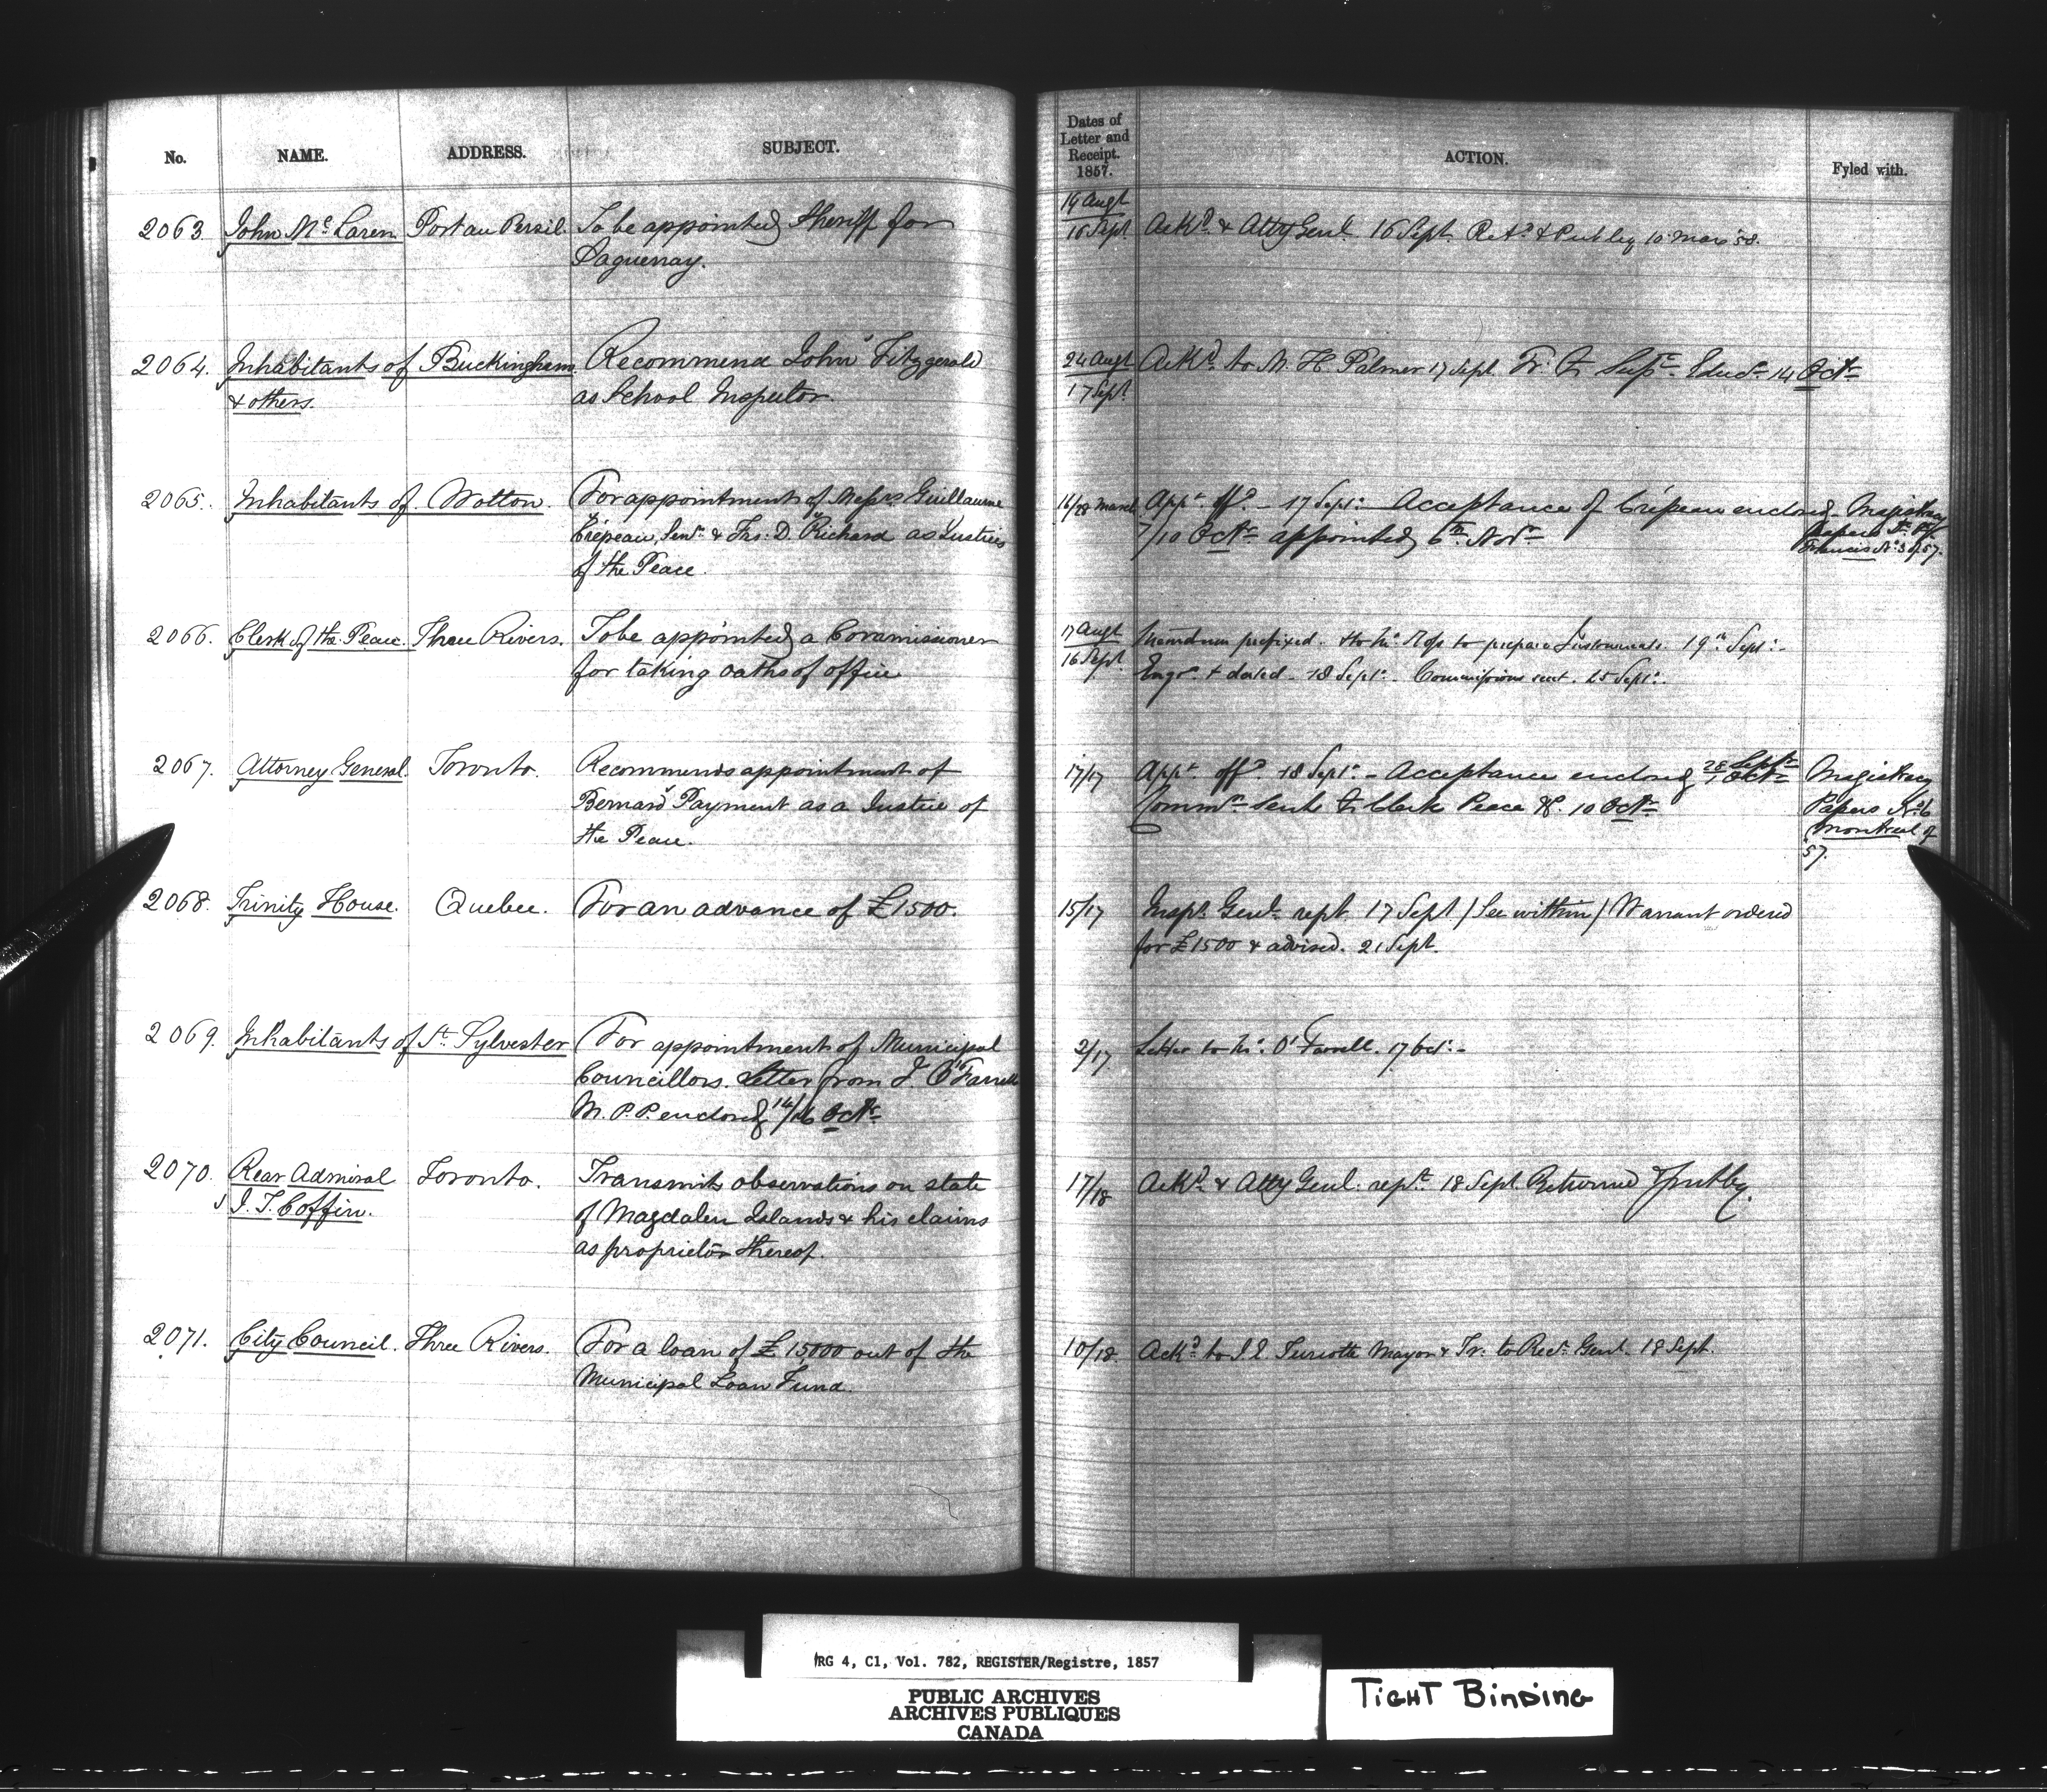 No. NAME. ADDRESS. SUBJECT.
Dates of
Letter and
Receipt.
1857.
ACTION. Fyled with.
2063 John McLaren Port au Persil. To be appointed Sheriff for
Saguenay.
19 Augt
16 Sept
Ackd. & Atty Genl. 16 Sept. Retd. 10 Mar '58.
2064. Inhabitants of Buckingham Recommend John Fitzgerald
& others. as School Inspector.
24 Augt
17 Sept
Ackd. to M. H. Palmer 17 Sept. Fr. to Supt. Educn. 14 Octr.
2065. Inhabitants of Wotton. For appointment of Messrs Guillaume
Crépeau, Senr. & Frs. D. Richard as Justices
of the Peace.
16/28 March
Appt. offd. - 17 Sept. Acceptance of Crépeau enclosed
7/10 Octr. appointed 6th Novr.
Magistracy
Papers St.
Francis No. 3 of 57.
2066. Clerk of the Peace. Three Rivers. To be appointed a Commissioner
for taking oaths of office
17 Augt
16 Sept
prefixed. to prepare Instruments. 19th Sept. -
Engd. & dated - 18 Sept. - Commissions sent. 25 Sept.
2067. Attorney General. Toronto. Recommends appointment of
Bernard Payment as a Justice of
the Peace.
17/17
Appt. offd. 18 Sept. - Acceptance enclosed 28 Sept. 1 Octr.
Commn. sent to Clerk Peace &c. 10 Octr.
Magistracy
Papers No. 6
Montreal of
'57.
2068. Trinity House. Quebec. For an advance of £1500.
15/17
Inspr. Genl. rept. 17 Sept / See within / Warrant ordered
for £1500 & advised. 21 Sept.
2069. Inhabitants of St. Sylvester For appointment of Municipal
Councillors. Letter from J. O'Farrell
M.P.P. enclosed 14/16 Octr.
2/17
Letter to Mr. O'Farrell. 17 Oct. -
2070. Rear Admiral Toronto. Transmits observations on state
J. T. Coffin. of Magdalen Islands & his claims
as proprietor thereof.
17/18
Ackd. & Atty Genl. rept. 18 Sept. Returned
2071. City Council. Three Rivers. For a loan of £15000 out of the
Municipal Loan Fund.
10/18.
Ackd. to J. E. Turcotte Mayor & Fr. to Recr. Genl. 18 Sept.
RG 4, C1, Vol. 782, REGISTER/Registre, 1857
PUBLIC ARCHIVES
ARCHIVES PUBLIQUES
CANADA
TIGHT BINDING